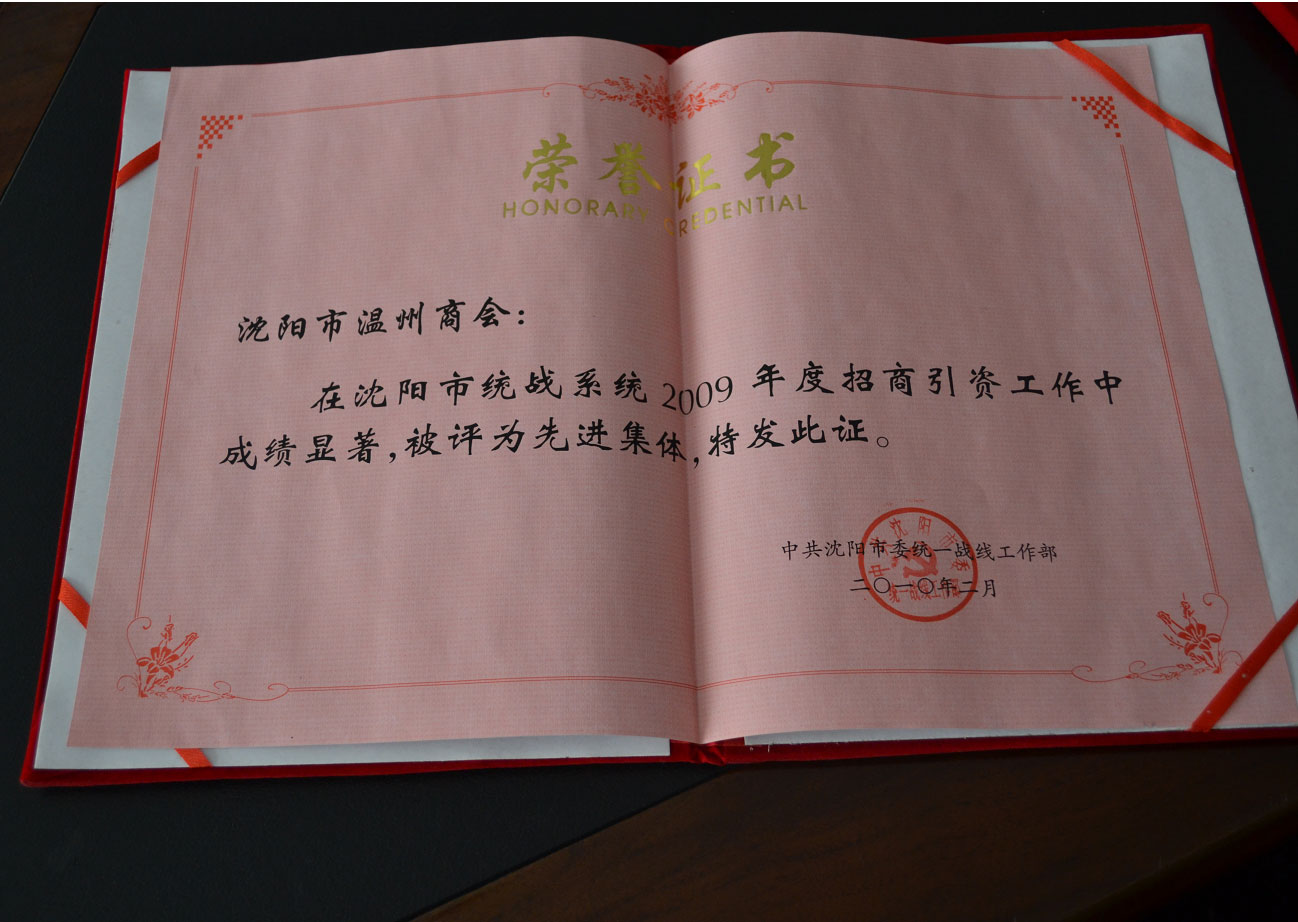 荣誉证书
HONORARY CREDENTIAL
沈阳市温州商会：
在沈阳市统战系统2009年度招商引资工作中
成绩显著，被评为先进集体，特发此证。
中共沈阳市委统一战线工作部
二〇一〇年二月
中共沈阳市委
统一战线工作部